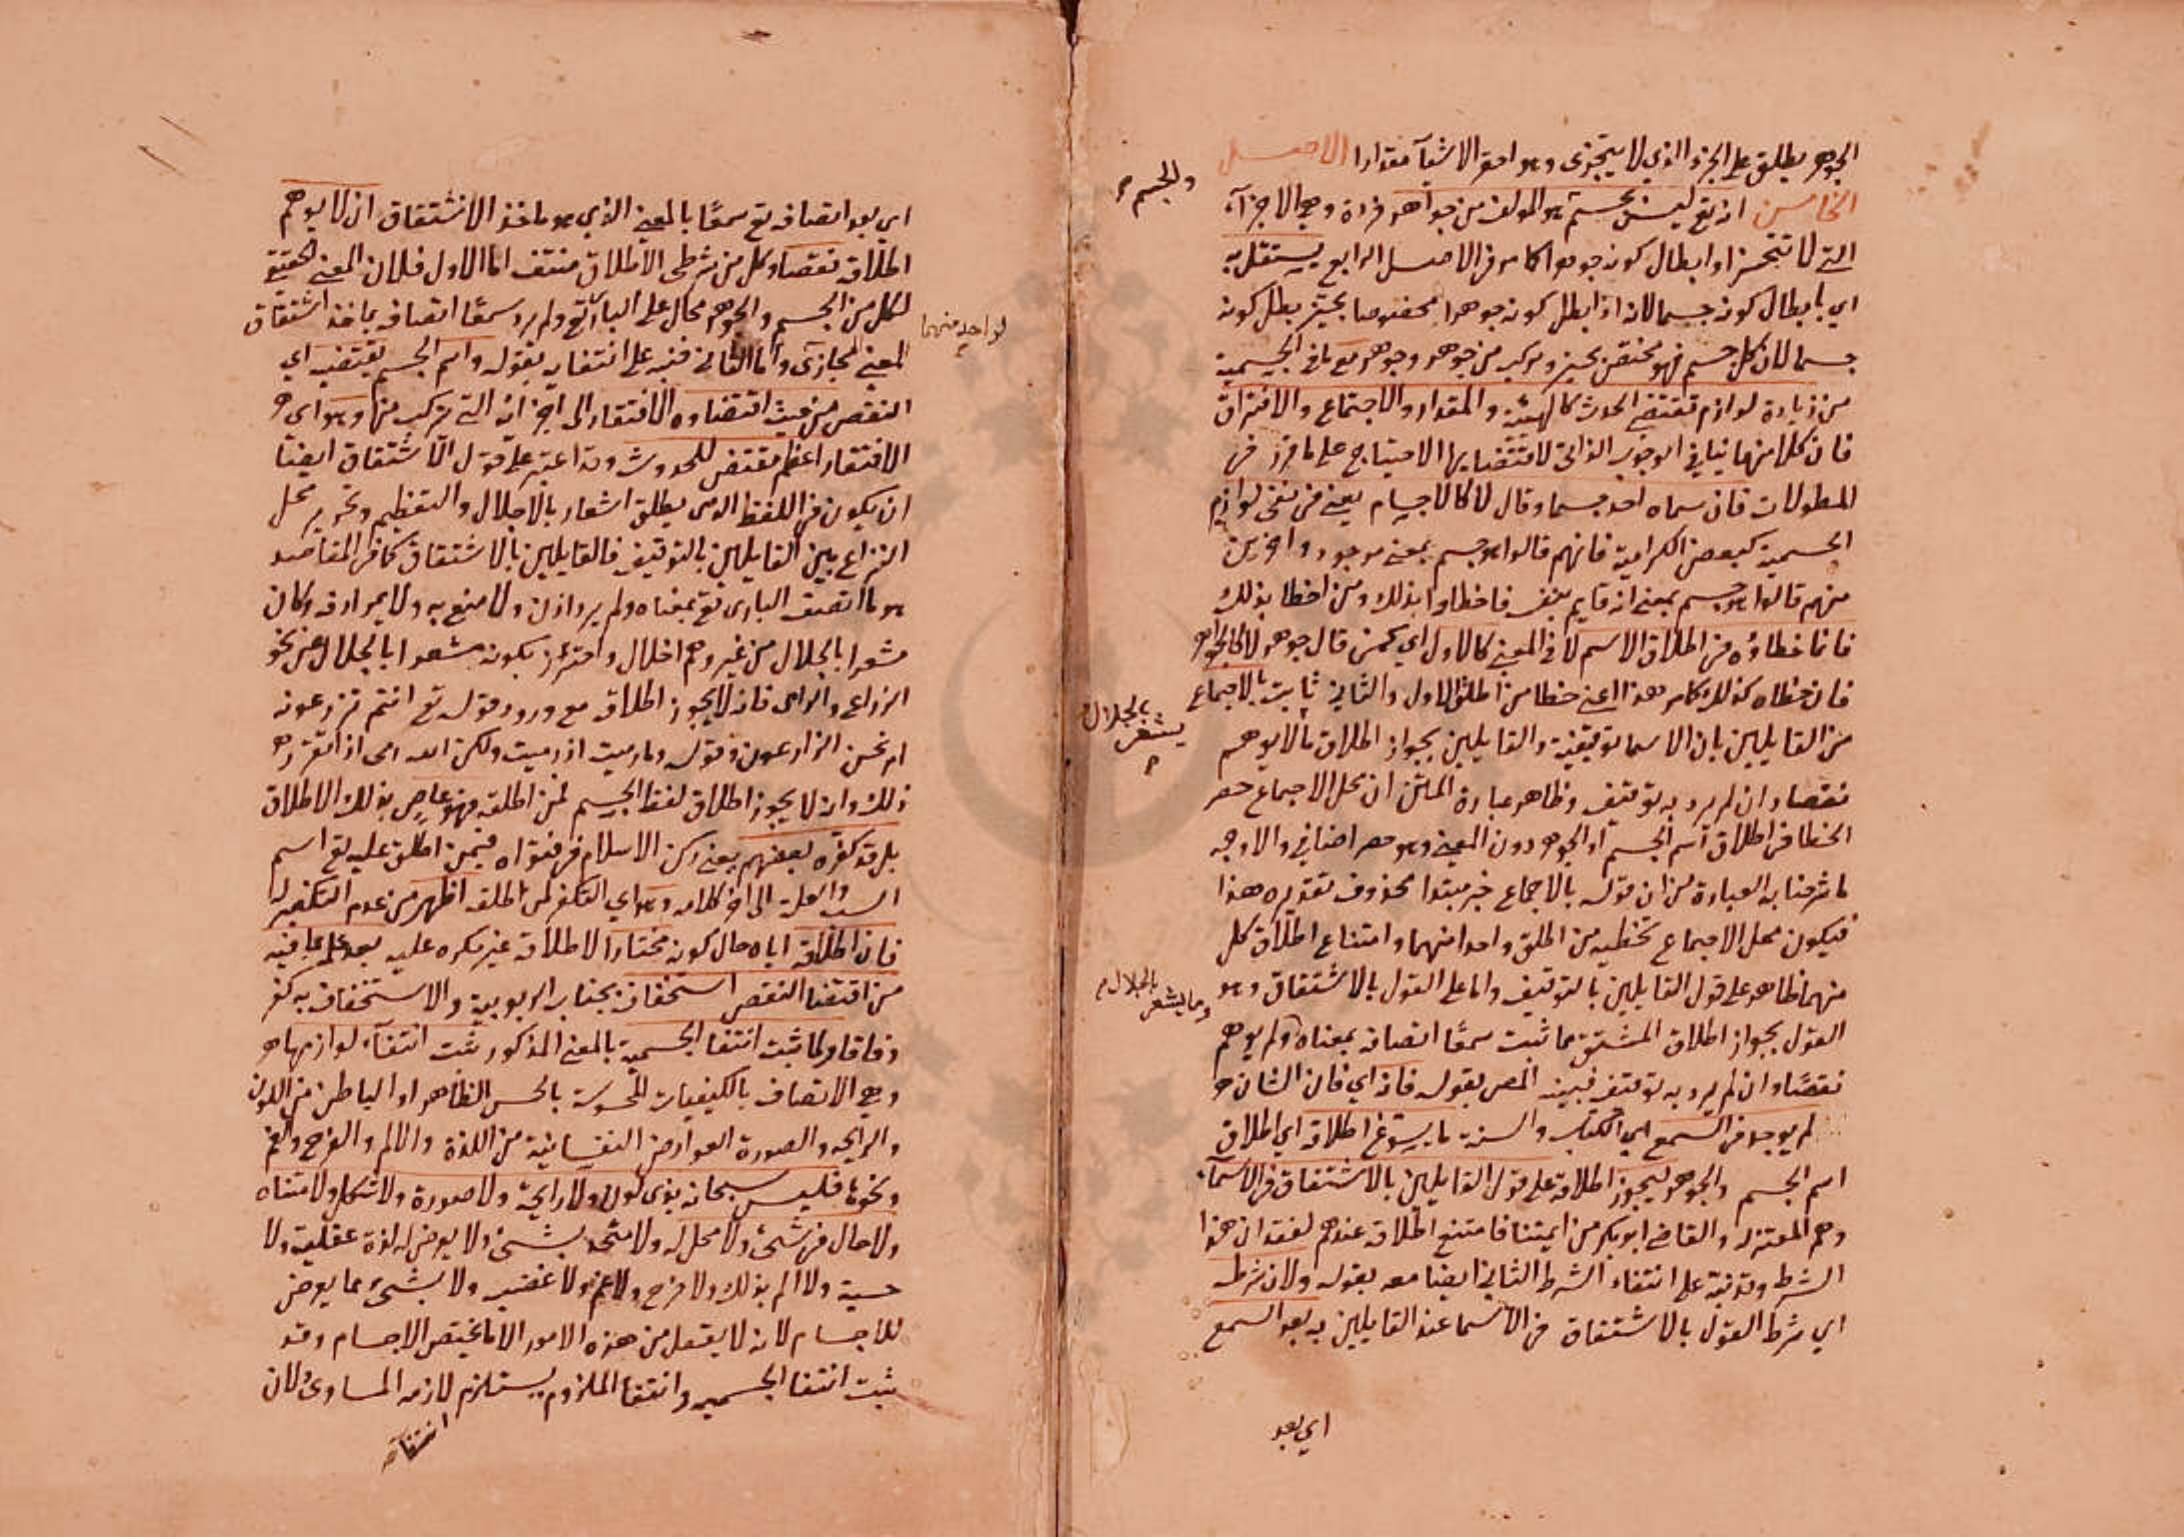 الجوهر يطلق على الجزء الذي لا يتجزى وهو احقر الاشيآ مقدارا الاصل
الخامس انه تع ليس بجسم هو المولف من جواهر فردة وهي الاجزآء
والجسم
التي لا تتجزا وابطال كونه جوهرا كما مر في الاصل الرابع يستقل به
اي بابطال كونه جسما لانه اذا بطل كونه جوهرا مخصوصا بحيز بطل كونه
جسما لان كل جسم فهو مختص بحيز ومركب من جوهر وجوهر مع ما في الجسمية
من زيادة لوازم تقتضي الحدث كالهيئة والمقدار والاجتماع والافتراق
فان كلا منها ينافي الوجوب الذاتي لاقتضايها الاحتياج على ما قرر في
المطولات فان سماه احد جسما وقال لا كالاجسام يعني في نفي لوازم
الجسمية كبعض الكرامية فانهم قالوا هو جسم بمعنى موجود واخرين
منهم قالوا هو جسم بمعنى انه قايم بنفسه فاخطاوا بذلك ومن اخطا بذلك
فانما خطاؤه في اطلاق الاسم لا في المعنى كالاول اي كمن قال جوهر لا كالجواهر
فان خطاه كذلك كما مر هذا اعني خطا من اطلق الاول والثاني ثابت بالاجماع
من القايلين بان الاسما توقيفية والقايلين بجواز اطلاق ما لا يوهم
يشعر بالجلال
نقصا وان لم يرد به توقيف وظاهر عبارة المتن ان محل الاجماع حصر
الخطا في اطلاق اسم الجسم او الجوهر دون المعنى وهو حصر اضافي والاوجه
ما شرحنا به العبارة من ان قوله بالاجماع خبر مبتدا محذوف تقديره هذا
فيكون محل الاجماع تخطيه من اطلق واحدا منهما وامتناع اطلاق كل
منهما ظاهر على قول القايلين بالتوقيف واما على القول بالاشتقاق وهو
القول بجواز اطلاق المشتق مما ثبت سمعًا اتصافه بمعناه ولم يوهم
وما يشعر بالجلال
نقصًا وان لم يرد به توقيف فبينه المص بقوله فانه اي فان الشان
لم يوجد في السمع اي الكتاب والسنة ما يسوغ اطلاقه اي اطلاق
اسم الجسم والجوهر ليجوز اطلاقه على قول القايلين بالاشتقاق في الاسمآء
وهم المعتزلة والقاضي ابو بكر من ايمتنا فامتنع اطلاقه عندهم لفقدان هذا
الشرط وقد نبه على انتفاء الشرط الثاني ايضا معه بقوله ولان شرطه
اي شرط القول بالاشتقاق في الاسما عند القايلين به بعد السمع
اي بعد
اي بعد اتصافه تع سمعًا بالمعنى الذي هو ماخذ الاشتقاق ان لا يوهم
اطلاقه نقصا وكل من شرطي الاطلاق منتف اما الاول فلان المعنى الحقيقي
لكل من الجسم والجوهر محال على الباري تع ولم يرد سمعًا اتصافه بماخذ اشتقاق
لواحد منهما
المعنى المجازي واما الثاني فنبه على انتفايه بقوله واسم الجسم يقتضيه اي
النقص من حيث اقتضاوه الافتقار الى اجزائه التي تركب منها وهو اي
الافتقار اعظم مقتض للحدوث وقد اعتبر على قول الاشتقاق ايضًا
ان يكون في اللفظ الذي يطلق اشعار بالاجلال والتعظيم وتحرير محل
النزاع بين القايلين بالتوقيف فالقايلين بالاشتقاق كما في المقاصد
هو ما اتصف الباري تع بمعناه ولم يرد اذن ولا منع به ولا بمرادفه وكان
مشعرا بالجلال من غير وهم اخلال واحترز بكونه مشعرا بالجلال عن نحو
الزارع والرامي فانه لا يجوز اطلاقه مع ورود قوله تع اانتم تزرعونه
ام نحن الزارعون وقوله وما رميت اذ رميت ولكن الله رمى اذا تقرر
ذلك وانه لا يجوز اطلاق لفظ الجسم لمن اطلقه فهو عاص بذلك الاطلاق
بل قد كفره بعضهم يعني ركن الاسلام في فتواه فيمن اطلق عليه تع اسم
السبب والعلة الى اخر كلامه وهو اي التكفير لمن اطلقه اظهر من عدم التكفير له
فان اطلاقه اياه حال كونه مختارا لاطلاقه غير مكره عليه بعد علمه بما فيه
من اقتضا النقص استخفاف بجناب الربوبية والاستخفاف به كفر
وفاقا ولما ثبت انتفا الجسمية بالمعنى المذكور ثبت انتفآء لوازمها
وهي الاتصاف بالكيفيات المحسوسة بالحس الظاهر او الباطن من اللون
والرايحه والصورة العوارض النفسانية من اللذة والالم والفرح والغم
ونحوها فليس سبحانه بذي لون ولا رايحة ولا صورة ولا شكل ولا متناه
ولا حال في شئ ولا محل له ولا متحد بشئ ولا يعرض له لذة عقلية ولا
حسية ولا الم بذلك ولا فرح ولا غم ولا غضب ولا بشئ مما يعرض
للاجسام لانه لا يعقل من هذه الامور الا ما يختص الاجسام وقد
ثبت انتفا الجسميه وانتفا الملزوم يستلزم لازمه المساوي ولان
انتفآء